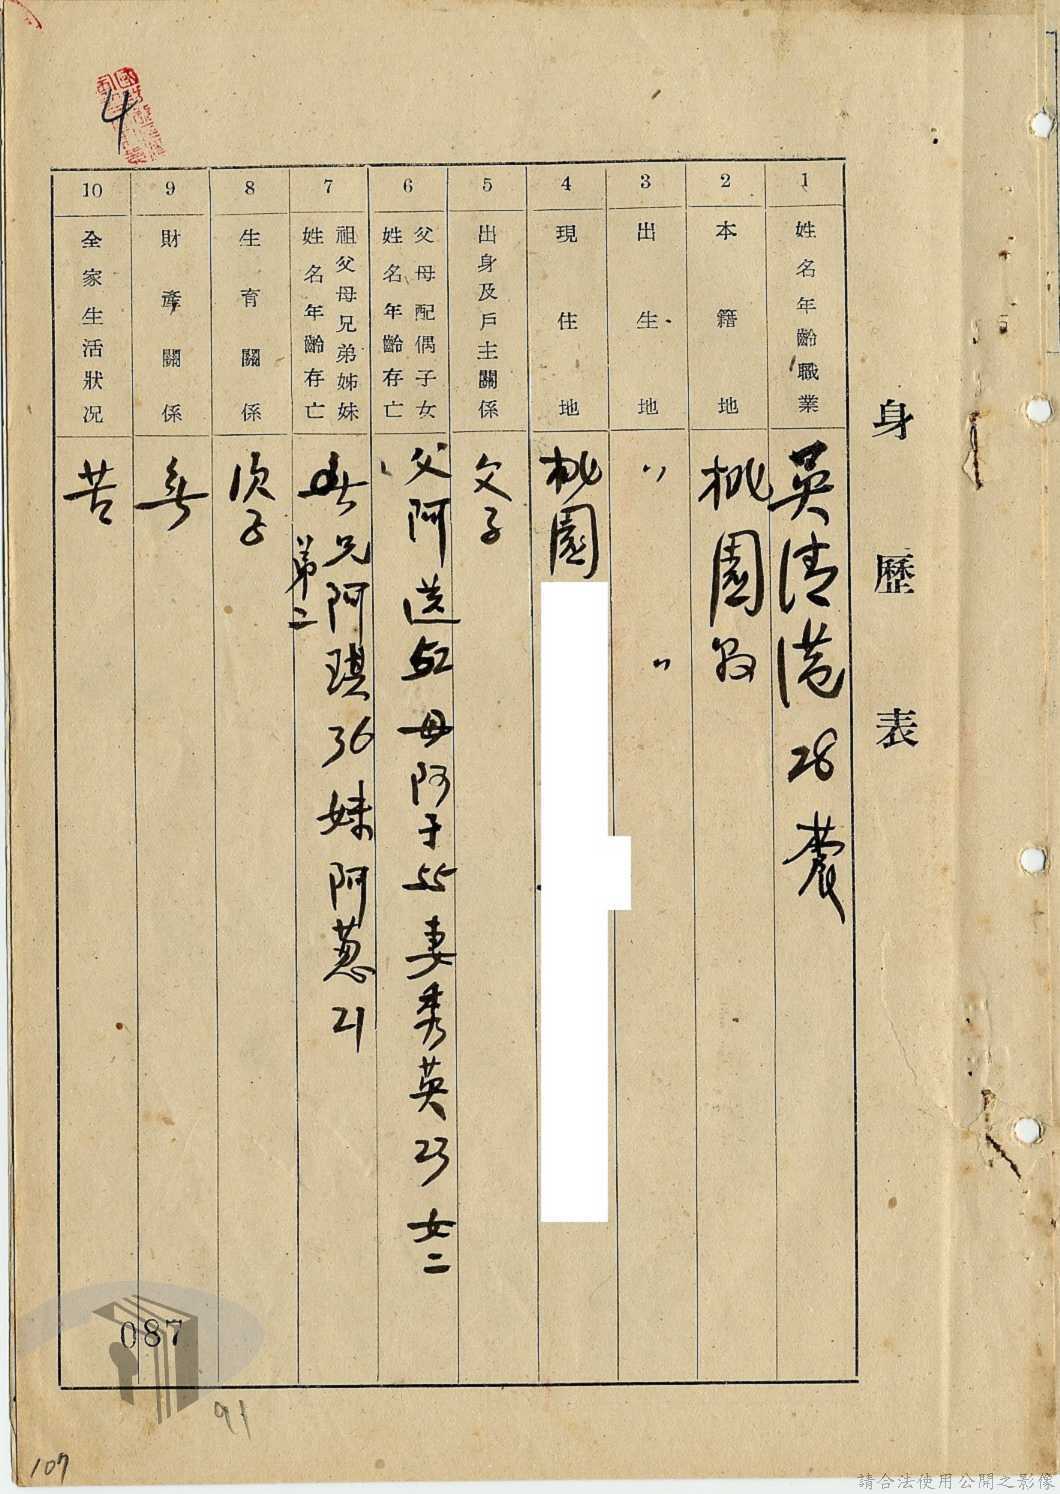 4
身歷表
1
姓名年齡職業
吳清港 28 農
2
本籍地
桃園县
3
出生地
〃 〃
4
現住地
桃園
5
出身及戶主關係
父子
6
父母配偶子女
姓名年齡存亡
父阿送52 母阿于55 妻秀英23 女二
7
祖父母兄弟姊妹
姓名年齡存亡
兄阿琪36 妹阿蔥21
弟二
8
生育關係
次子
9
財產關係
無
10
全家生活狀況
苦
087
91
107
請合法使用公開之影像